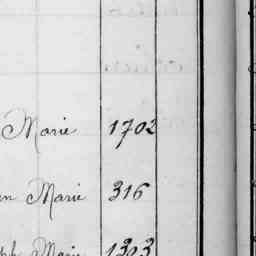 Marie 1702
en Marie 316
ph Marie 1303